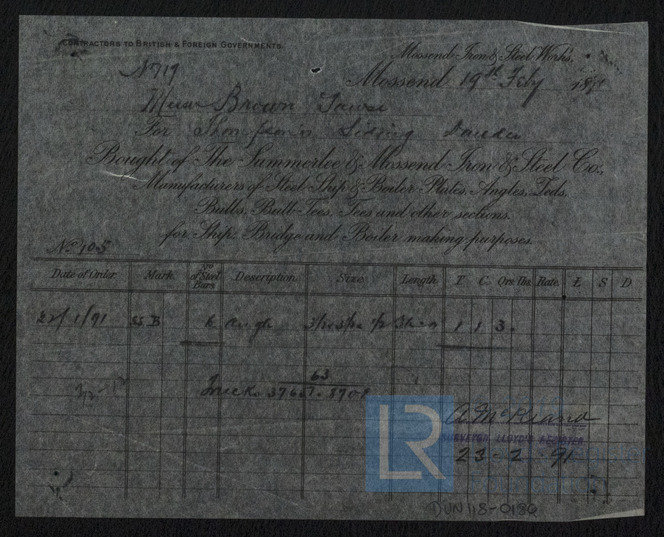 CONTRACTORS TO BRITISH & FOREIGN GOVERNMENTS.
Mossend Iron & Steel Works,
No 719
Mossend 19th Feby 1891
Messrs Brown
For Thompson's Siding Dundee
Bought of The Summerlee & Mossend Iron & Steel Co.,
Manufacturers of Steel Ship & Boiler Plates, Angles, Zeds,
Bulbs, Bulb Tees, Tees and other sections,
for Ship, Bridge and Boiler making purposes.
No 105
Date of Order. Mark. No. of Steel Bars Description. Size. Length. T. C. Qrs. lbs. Rate. £ S D
22/1/91 6 Angle 1 1 3
63
Trucks
A. McKeand
SURVEYOR LLOYD'S REGISTER
23-2 91
LR
DUN118-0180